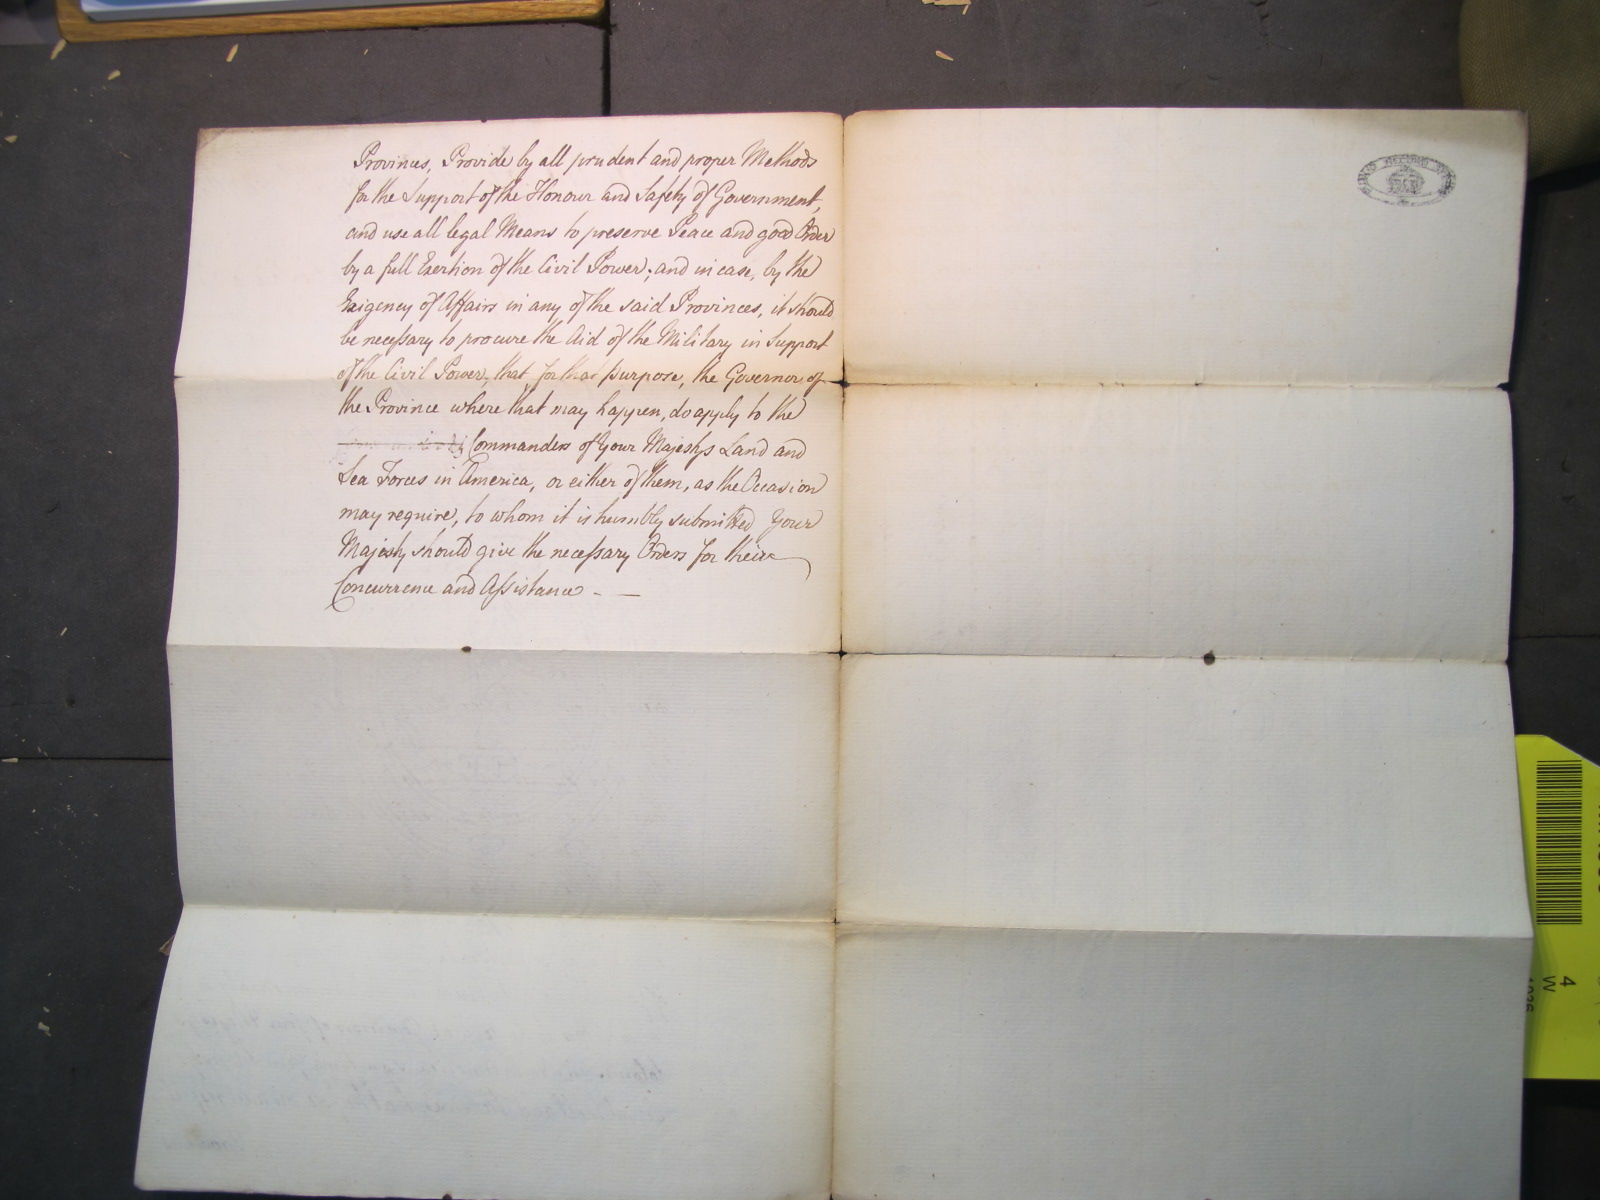 Provinces, Provide by all prudent and proper Methods
for the Support of the Honour and Safety of Government,
and use all legal Means to preserve Peace and good Order
by a full Exertion of the Civil Power; and in case, by the
Exigency of Affairs in any of the said Provinces, it should
be necessary to procure the Aid of the Military in Support
of the Civil Power, that for that purpose, the Governor of
the Province where that may happen, do apply to the
Commanders of Your Majestys Land and
Sea Forces in America, or either of them, as the Occasion
may require, to whom it is humbly submitted Your
Majesty should give the necessary Orders for their
Concurrence and Assistance - —
4
W